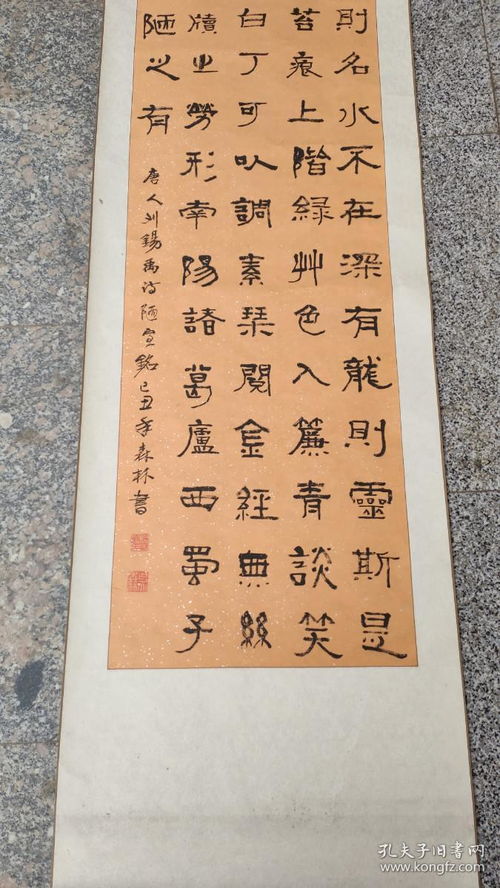 則名水不在深有龍則靈斯是
苔痕上階緑艸色入簾青談笑
白丁可以調素琹閱金經無絲
牘之勞形南陽諸葛廬西蜀子
陋之有
唐人刘錫禹诗陋室銘己丑年森林書
孔夫子旧书网
www.kongfz.com